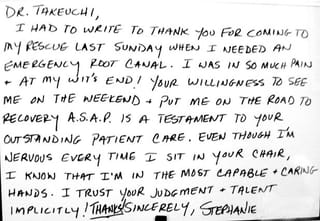 DR. TAKEUCHI,
I HAD TO WRITE TO THANK YOU FOR COMING TO
MY RESCUE LAST SUNDAY WHEN I NEEDED AN
EMERGENCY ROOT CANAL. I WAS IN SO MUCH PAIN
+ AT MY WIT'S END! YOUR WILLINGNESS TO SEE
ME ON THE WEEKEND + PUT ME ON THE ROAD TO
RECOVERY A.S.A.P. IS A TESTAMENT TO YOUR
OUTSTANDING PATIENT CARE. EVEN THOUGH I'M
NERVOUS EVERY TIME I SIT IN YOUR CHAIR,
I KNOW THAT I'M IN THE MOST CAPABLE + CARING
HANDS. I TRUST YOUR JUDGMENT + TALENT
IMPLICITLY! THANKS! SINCERELY, STEPHANIE